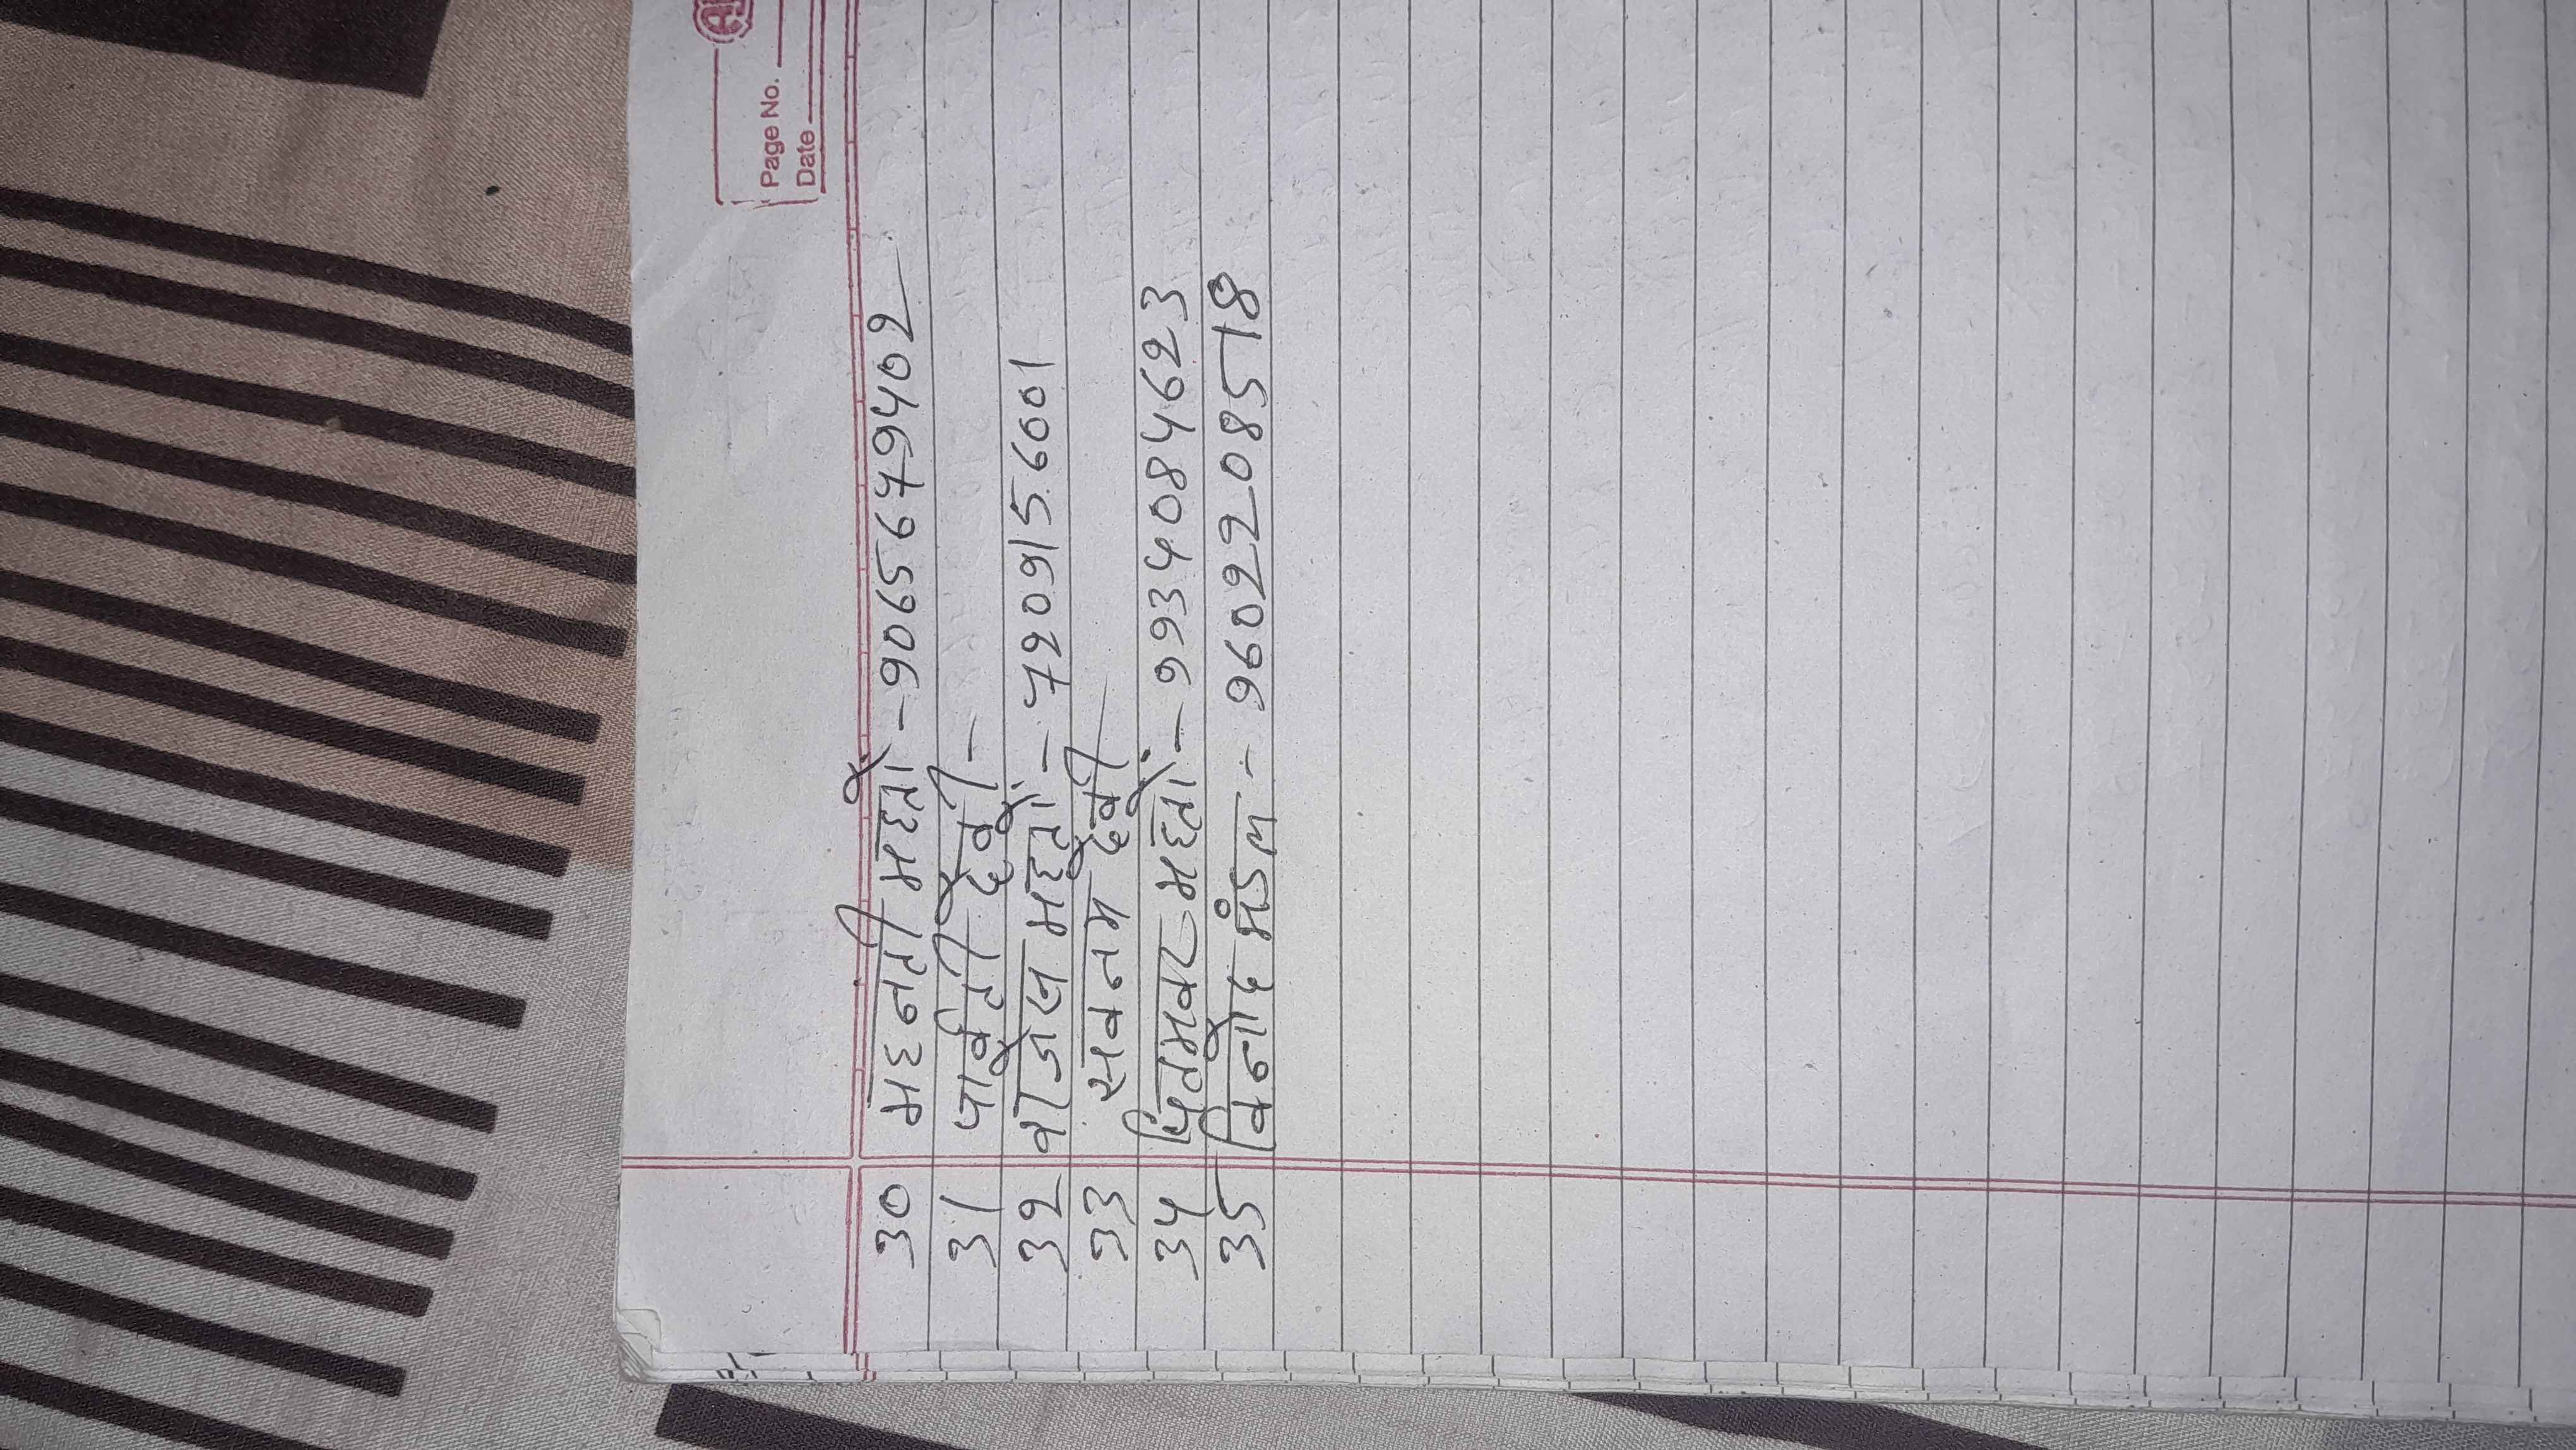 Page No.
Date
30 महनती महतो - 9065679402
31 पार्वती देवी -
32 बाजेल महतो - 7209156001
33 सबनम देवी
34 पितमबर महतो - 9934084623
35 विनोद मंडल - 9602208518